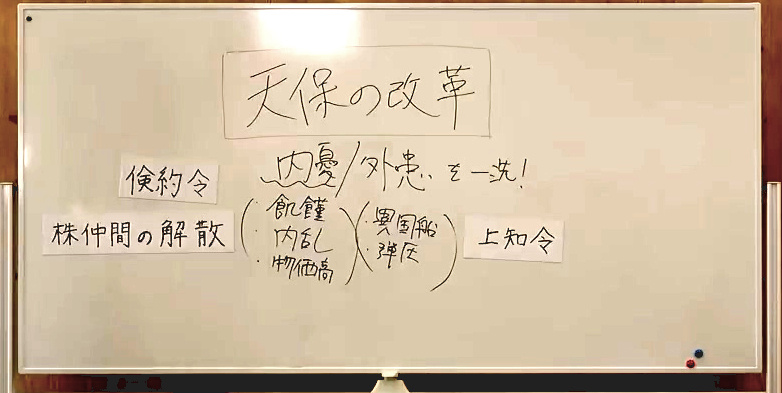 天保の改革
倹約令
内憂/外患を一洗!
株仲間の解散
(・飢饉
・内乱
・物価高)
(・異国船
・弾圧)
上知令